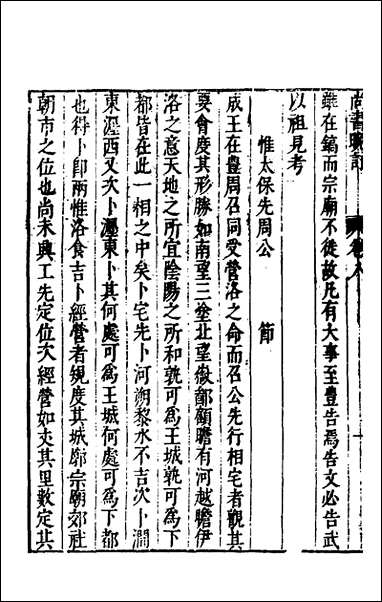 雖在鎬而宗廟不徙故凡有大事至豐告焉告文必告武
以祖見考
惟太保先周公　節
成王在豐周召同受營洛之命而召公先行相宅者觀其
要會度其形勝如南望三塗北望嶽鄙顧瞻有河越瞻伊
洛之意天地之所宜陰陽之所和孰可為王城孰可為下
都皆在此一相之中矣卜宅先卜河朔黎水不吉次卜澗
東瀍西又次卜瀍東卜其何處可為王城何處可為下都
也得卜卽兩惟洛食吉卜經營者規度其城郭宗廟郊社
朝市之位也尚未興工先定位次經營如丈其里數定其